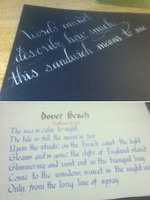 words cannot
describe how much
this sandwich means to me
Dover Beach
Matthew Arnold
The sea is calm to-night.
The tide is full, the moon is fair
Upon the straits; on the French coast the light
Gleams and is gone; the cliffs of England stand,
Glimmering and vast, out in the tranquil bay.
Come to the window, sweet is the night-air!
Only, from the long line of spray